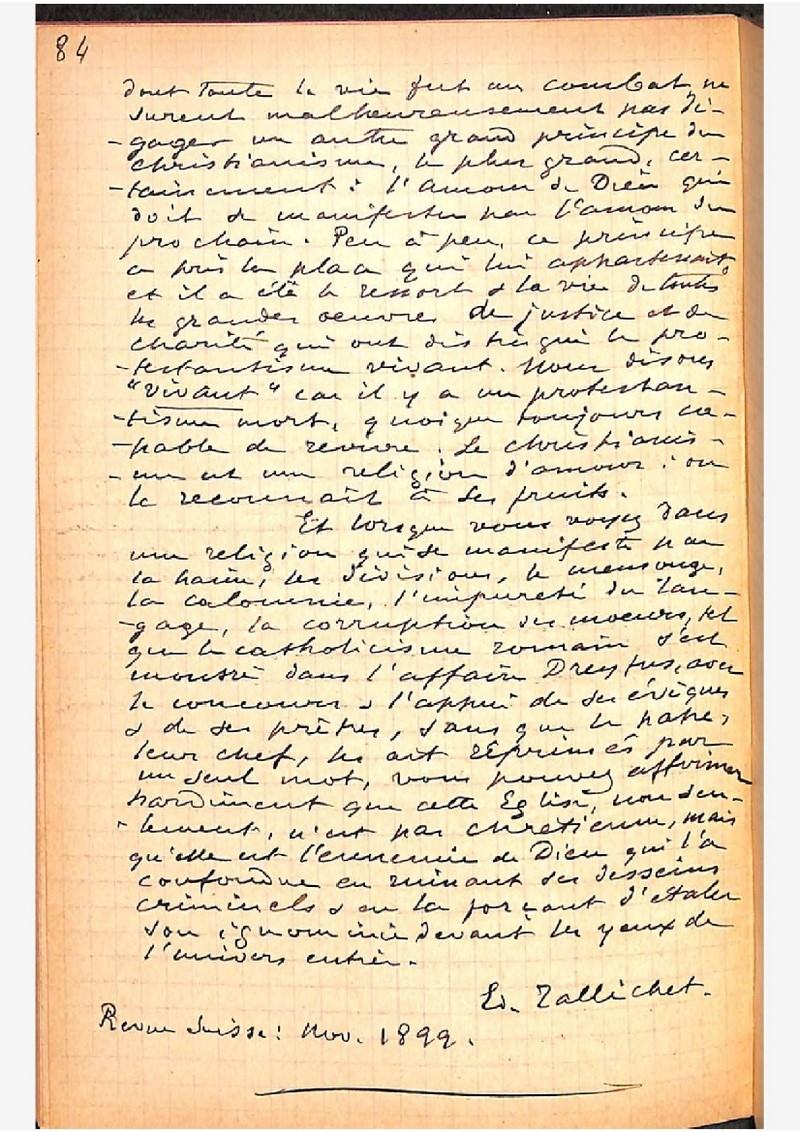 84
dont toute la vie fut un combat, ne
surent malheureusement pas dé-
-gager un autre grand principe du
christianisme, le plus grand, cer-
-tainement : l'amour de Dieu qui
doit se manifester par l'amour du
prochain. Peu à peu, ce principe
a pris la place qui lui appartenait,
et il a été le ressort & la vie de toutes
les grandes oeuvres de justice et de
charité qui ont distingué le pro-
-testantisme vivant. Nous disons
"vivant" car il y a un protestan-
-tisme mort, quoique toujours ca-
-pable de revivre. Le christianis-
-me est une religion d'amour : on
le reconnaît à ses fruits.
Et lorsque vous voyez dans
une religion qui se manifeste par
la haine, les divisions, le mensonge,
la calomnie, l'impureté du lan-
-gage, la corruption des moeurs, tel
que le catholicisme romain s'est
montré dans l'affaire Dreyfus, avec
le concours & l'appui de ses évêques
& de ses prêtres, sans que le pape,
leur chef, les ait réprimés par
un seul mot, vous pouvez affirmer
hardiment que cette Eglise, non seu-
-lement, n'est pas chrétienne, mais
qu'elle est l'ennemie de Dieu qui l'a
confondue en ruinant ses desseins
criminels & en la forçant d'étaler
son ignominie devant les yeux de
l'univers entier.
Ed. Tallichet.
Revue Suisse : Nov. 1899.